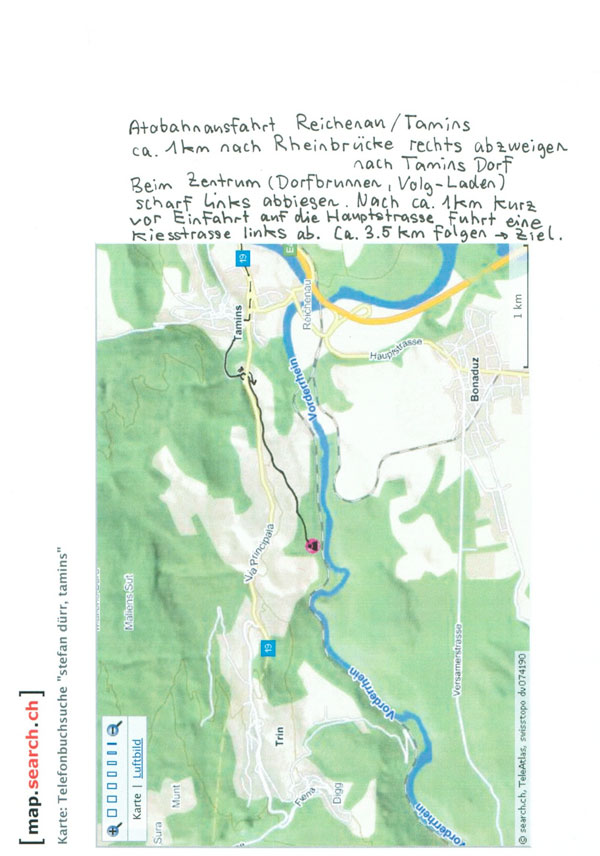 Atobahnausfahrt Reichenau/Tamins
ca. 1km nach Rheinbrücke rechts abzweigen
nach Tamins Dorf
Beim Zentrum (Dorfbrunnen, Volg-Laden)
scharf links abbiegen. Nach ca. 1km kurz
vor Einfahrt auf die Hauptstrasse führt eine
Kiesstrasse links ab. Ca. 3.5 km folgen → Ziel.
[map.search.ch]
Karte: Telefonbuchsuche "stefan dürr, tamins"
Karte | Luftbild
19
Tamins
Reichenau
Vorderrhein
Hauptstrasse
Bonaduz
1 km
Via Principala
Mallens Sut
19
Trin
Vorderrhein
Versamerstrasse
Munt
Sura
Fiena
Digg
Vorderrhein
© search.ch, TeleAtlas, swisstopo dv074190